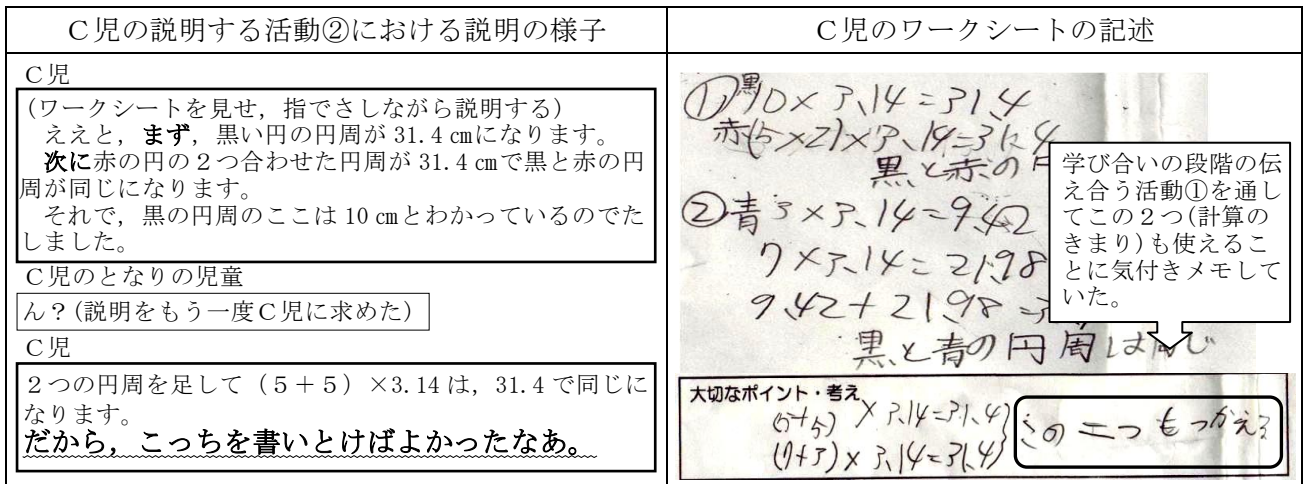 C児の説明する活動②における説明の様子
C児
(ワークシートを見せ，指でさしながら説明する)
ええと，まず，黒い円の円周が 31.4 ㎝になります。
次に赤の円の２つ合わせた円周が 31.4 ㎝で黒と赤の円
周が同じになります。
それで，黒の円周のここは 10 ㎝とわかっているのでた
しました。
C児のとなりの児童
ん？(説明をもう一度C児に求めた)
C児
２つの円周を足して（５＋５）×3.14 は，31.4 で同じに
なります。
だから，こっちを書いとけばよかったなあ。
C児のワークシートの記述
① 黒10×3.14=31.4
赤(5×2)×3.14=31.4
黒と赤の
② 青3×3.14=9.42
7×3.14=21.98
9.42+21.98=
黒と青の円周は同じ
学び合いの段階の伝
え合う活動①を通し
てこの２つ(計算の
きまり)も使えるこ
とに気付きメモして
いた。
大切なポイント・考え
(5+5)×3.14=31.4
(7+3)×3.14=31.4
この二つもつかえる